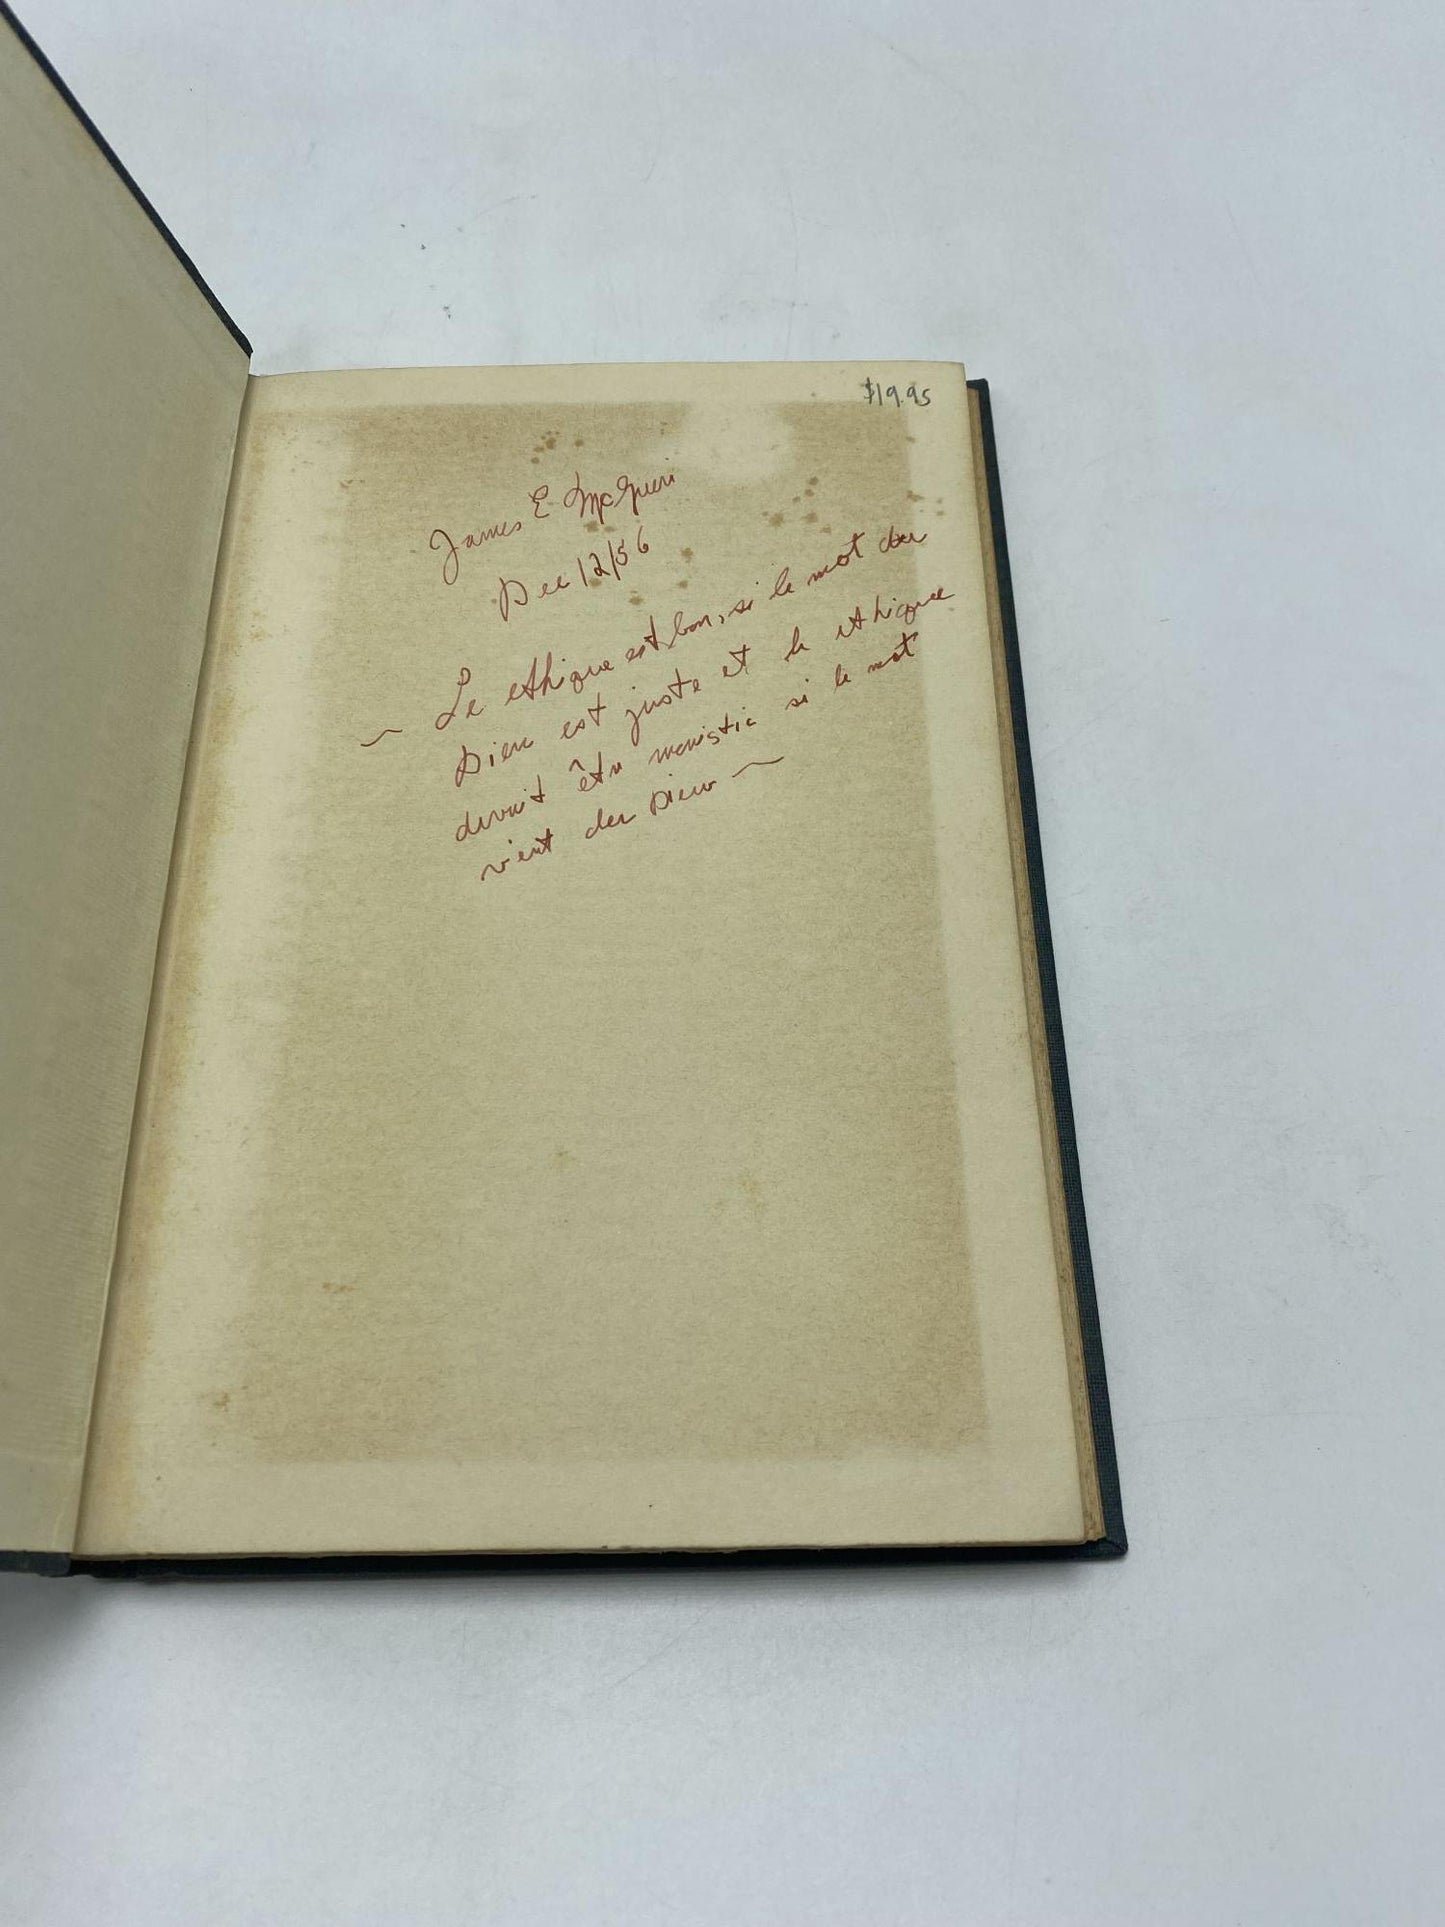 $19.95
James E McGueri
Dec 12/56
~ Le ethique est bon, si le mot deu
Dieu est juste et le ethique
devait être monistic si le mot
vient deu Dieu ~